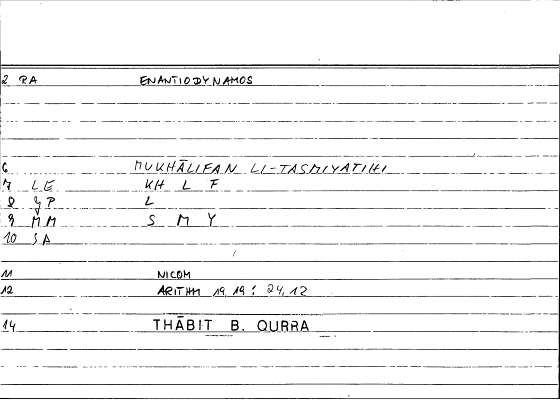 2 RA ENANTIODYNAMOS
6 MUKHĀLIFAN LI-TASMIYATIHI
7 LE KH L F
8 JP L
9 MM S M Y
10 SA
11 NICOM
12 ARITHM 19,19 : 24,12
14 THĀBIT B. QURRA